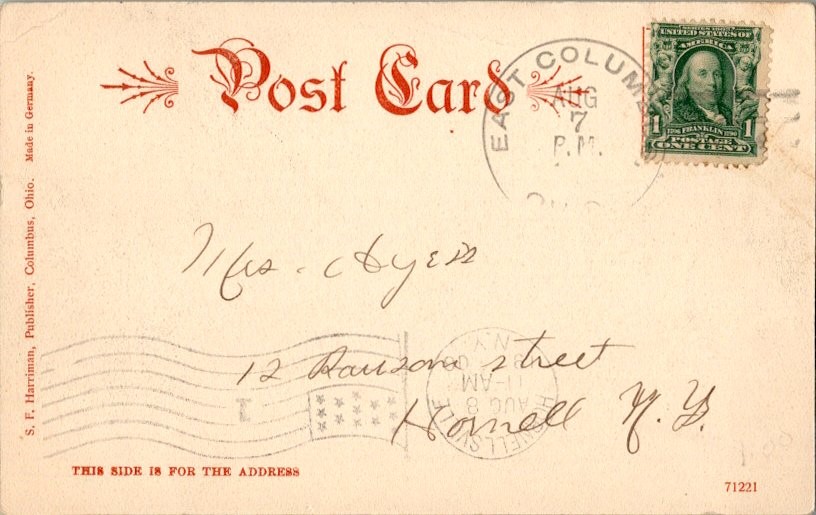 Post Card
EAST COLUMB
AUG
7
P.M.
SERIES 1902
UNITED STATES OF
AMERICA
1 FRANKLIN 1
POSTAGE
ONE CENT
S. F. Harriman, Publisher, Columbus, Ohio. Made in Germany.
Mrs.
12 Ransom street
Hornell N.Y.
HORNELLSVILLE
AUG 8
11-AM
N.Y.
THIS SIDE IS FOR THE ADDRESS
71221